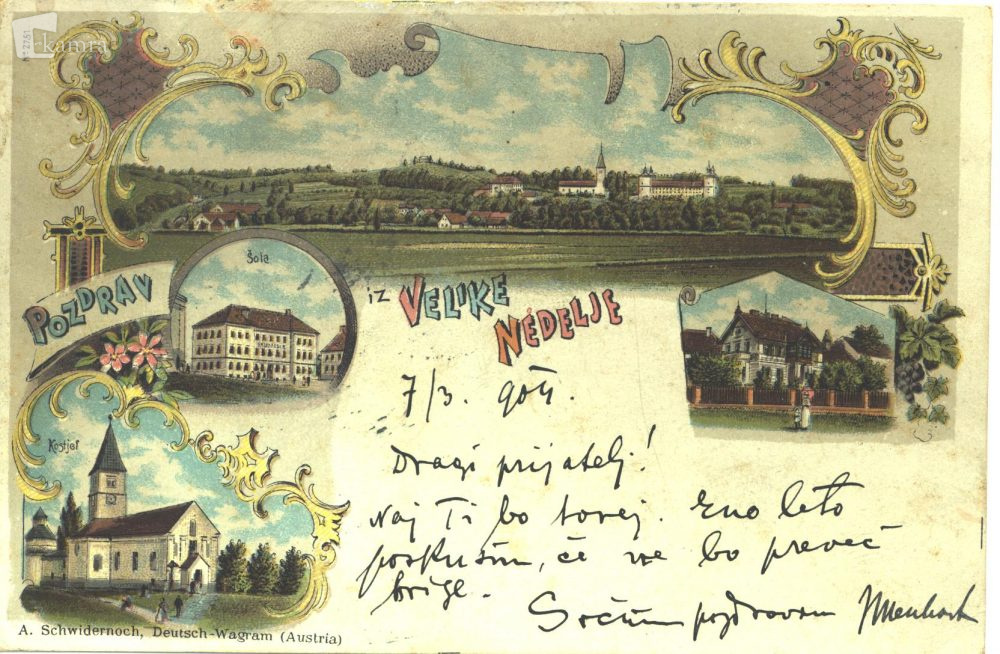 kamra
Šola
POZDRAV iz VELIKE
NEDELJE
7/3. 904.
Dragi prijatelj!
Naj Ti bo torej. Eno leto
poskusim, če ne bo preveč
brige.
Srčnim pozdravom
A. Schwidernoch, Deutsch-Wagram (Austria)